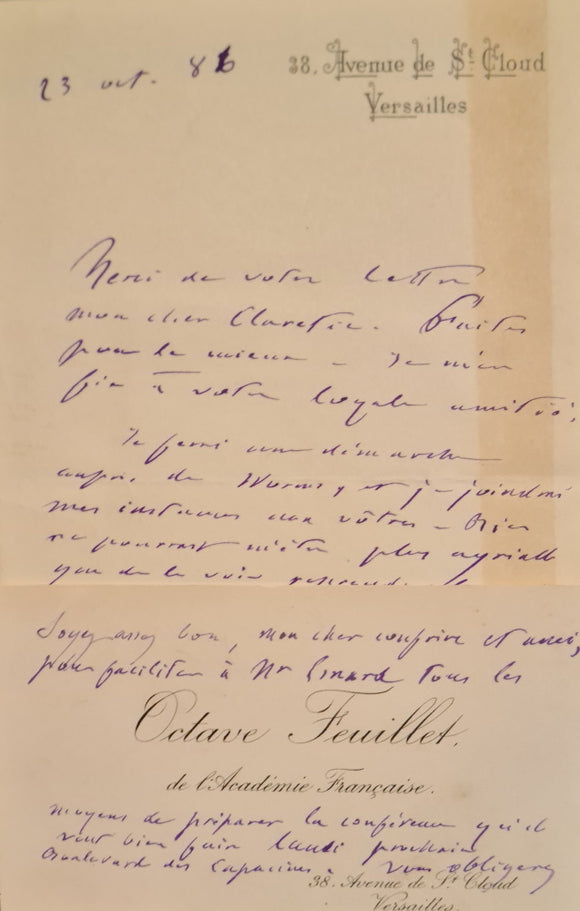 23 oct. 86
38, Avenue de St. Cloud
Versailles
Merci de votre lettre
mon cher Claretie. Faites
pour le mieux – Je m'en
fie à votre loyale amitié.
Je ferai une démarche
auprès de Worms, et je joindrai
mes instances aux vôtres – Rien
ne pourrait m'être plus agréable
que de le voir reprendre
Soyez assez bon, mon cher confrère et ami,
pour faciliter à Mr tous les
Octave Feuillet.
de l'Académie Française.
moyens de préparer la conférence qu'il
veut bien faire lundi prochain
Boulevard des Capucines. vous obligerez
38. Avenue de St. Cloud
Versailles.